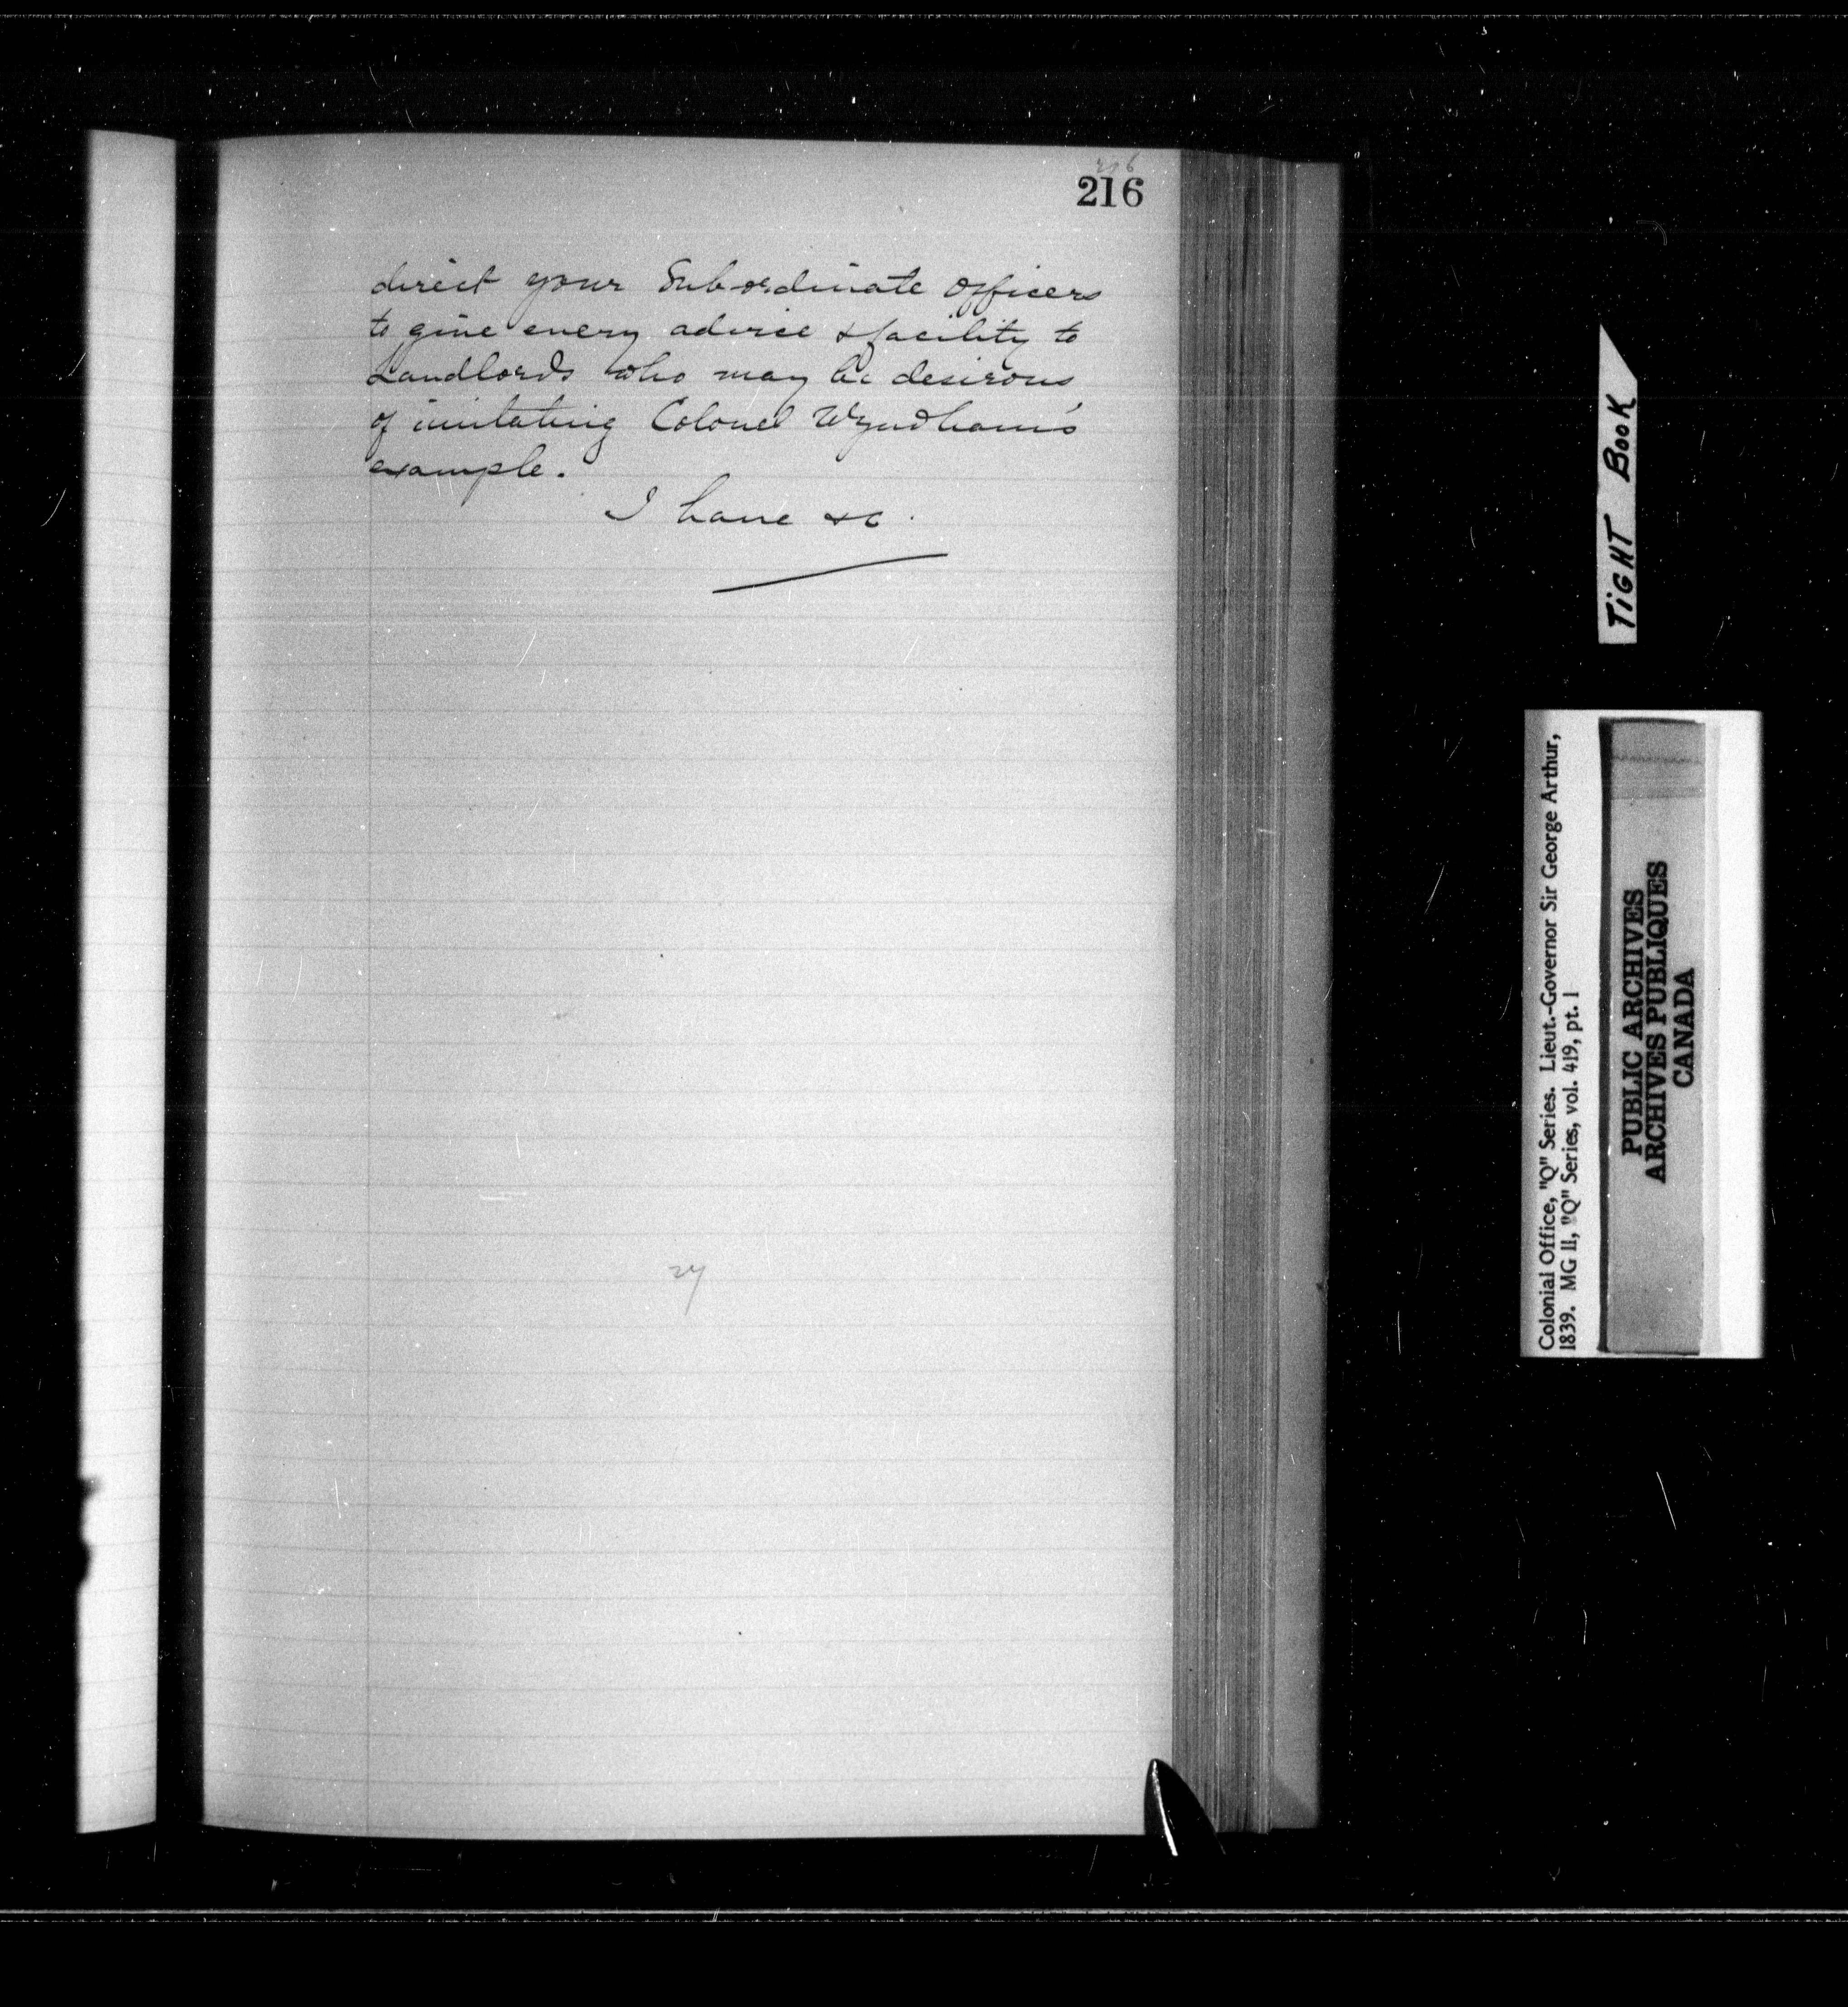 216
direct your Subordinate Officers
to give every advice & facility to
Landlords who may be desirous
of imitating Colonel Wyndham's
example.
I have &c.
27
TIGHT BOOK
Colonial Office, "Q" Series. Lieut.-Governor Sir George Arthur,
1839. MG 11, "Q" Series, vol. 419, pt. 1
PUBLIC ARCHIVES
ARCHIVES PUBLIQUES
CANADA